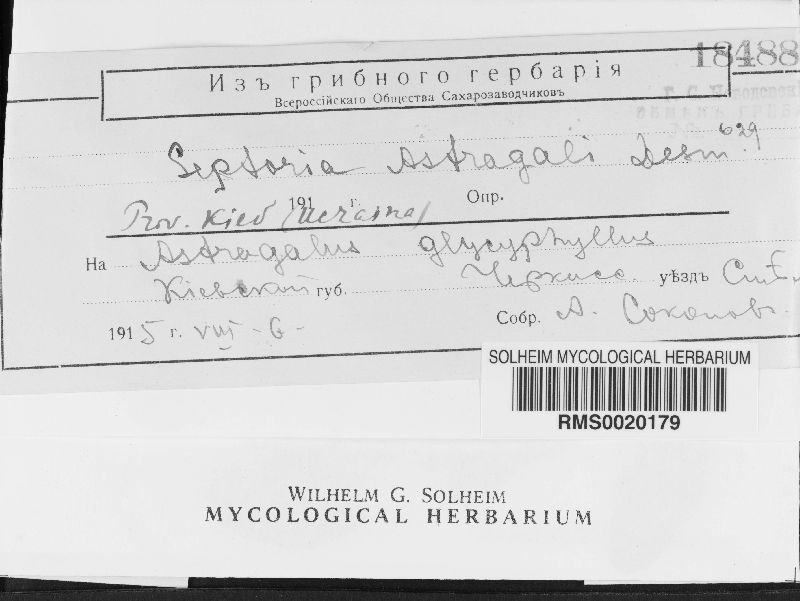 18488
Изъ грибного гербарія
Всероссійскаго Общества Сахарозаводчиковъ
629
Septoria Astragali Desm.
191 г. Опр.
Prov. Kiev (Ucraina)
На Astragalus glycyphyllus
Кіевской губ. Черкасс уѣздъ
1915 г. VIII - 6 - Собр. А. Соколовъ.
SOLHEIM MYCOLOGICAL HERBARIUM
RMS0020179
WILHELM G. SOLHEIM
MYCOLOGICAL HERBARIUM